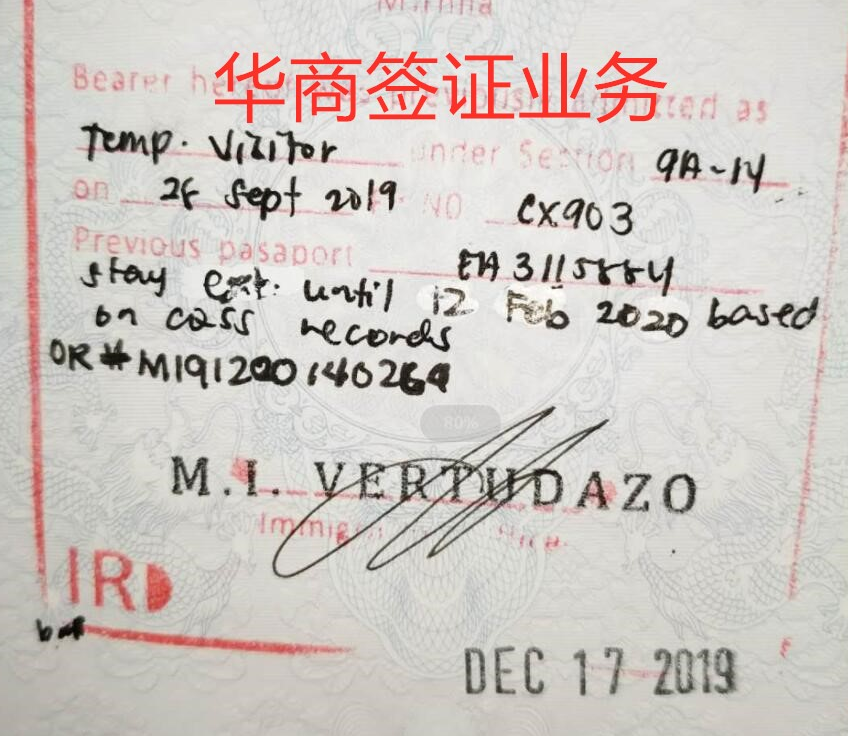 Manila
华商签证业务
Bearer admitted as
Temp. Visitor under Section 9A-14
on 28 Sept 2019 NO CX903
Previous pasaport EA3115884
stay ext. until 12 Feb 2020 based
on case records
OR # M191200140269
M.I. VERTUDAZO
80%
IRD
DEC 17 2019